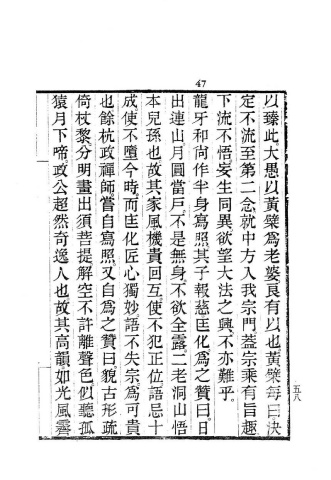 47
以臻此大愚以黃檗為老婆良有以也黃檗每曰決
定不流至第二念就中方入我宗門蓋宗乘有旨趣
下流不悟妄生同異欲望大法之興不亦難乎。
龍牙和尚作半身寫照其子報慈匡化為之贊曰日
出連山月圓當戶不是無身不欲全露二老洞山悟
本兒孫也故其家風機貴回互使不犯正位語忌十
成使不墮今時而匡化匠心獨妙語不失宗為可貴
也餘杭政禪師嘗自寫照又自為之贊曰貌古形疏
倚杖黎分明畫出須菩提解空不許離聲色似聽孤
猿月下啼政公超然奇逸人也故其高韻如光風霽
五八